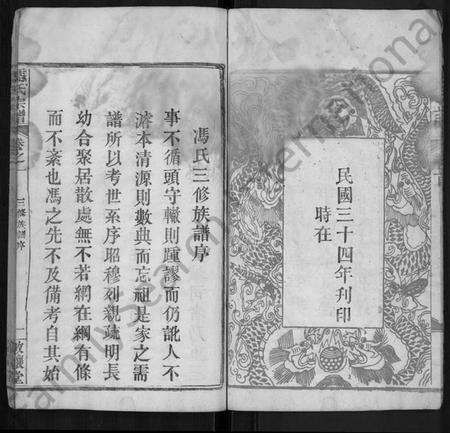 時在
民國三十四年刊印
馮氏三修族譜序
事不循頭守轍則踵謬而仍訛人不
濬本清源則數典而忘祖是家之需
譜所以考世系序昭穆列親疏明長
幼合聚居散處無不若網在綱有條
而不紊也馮之先不及備考自其始
馮氏宗譜
卷之一
三修族譜序
一